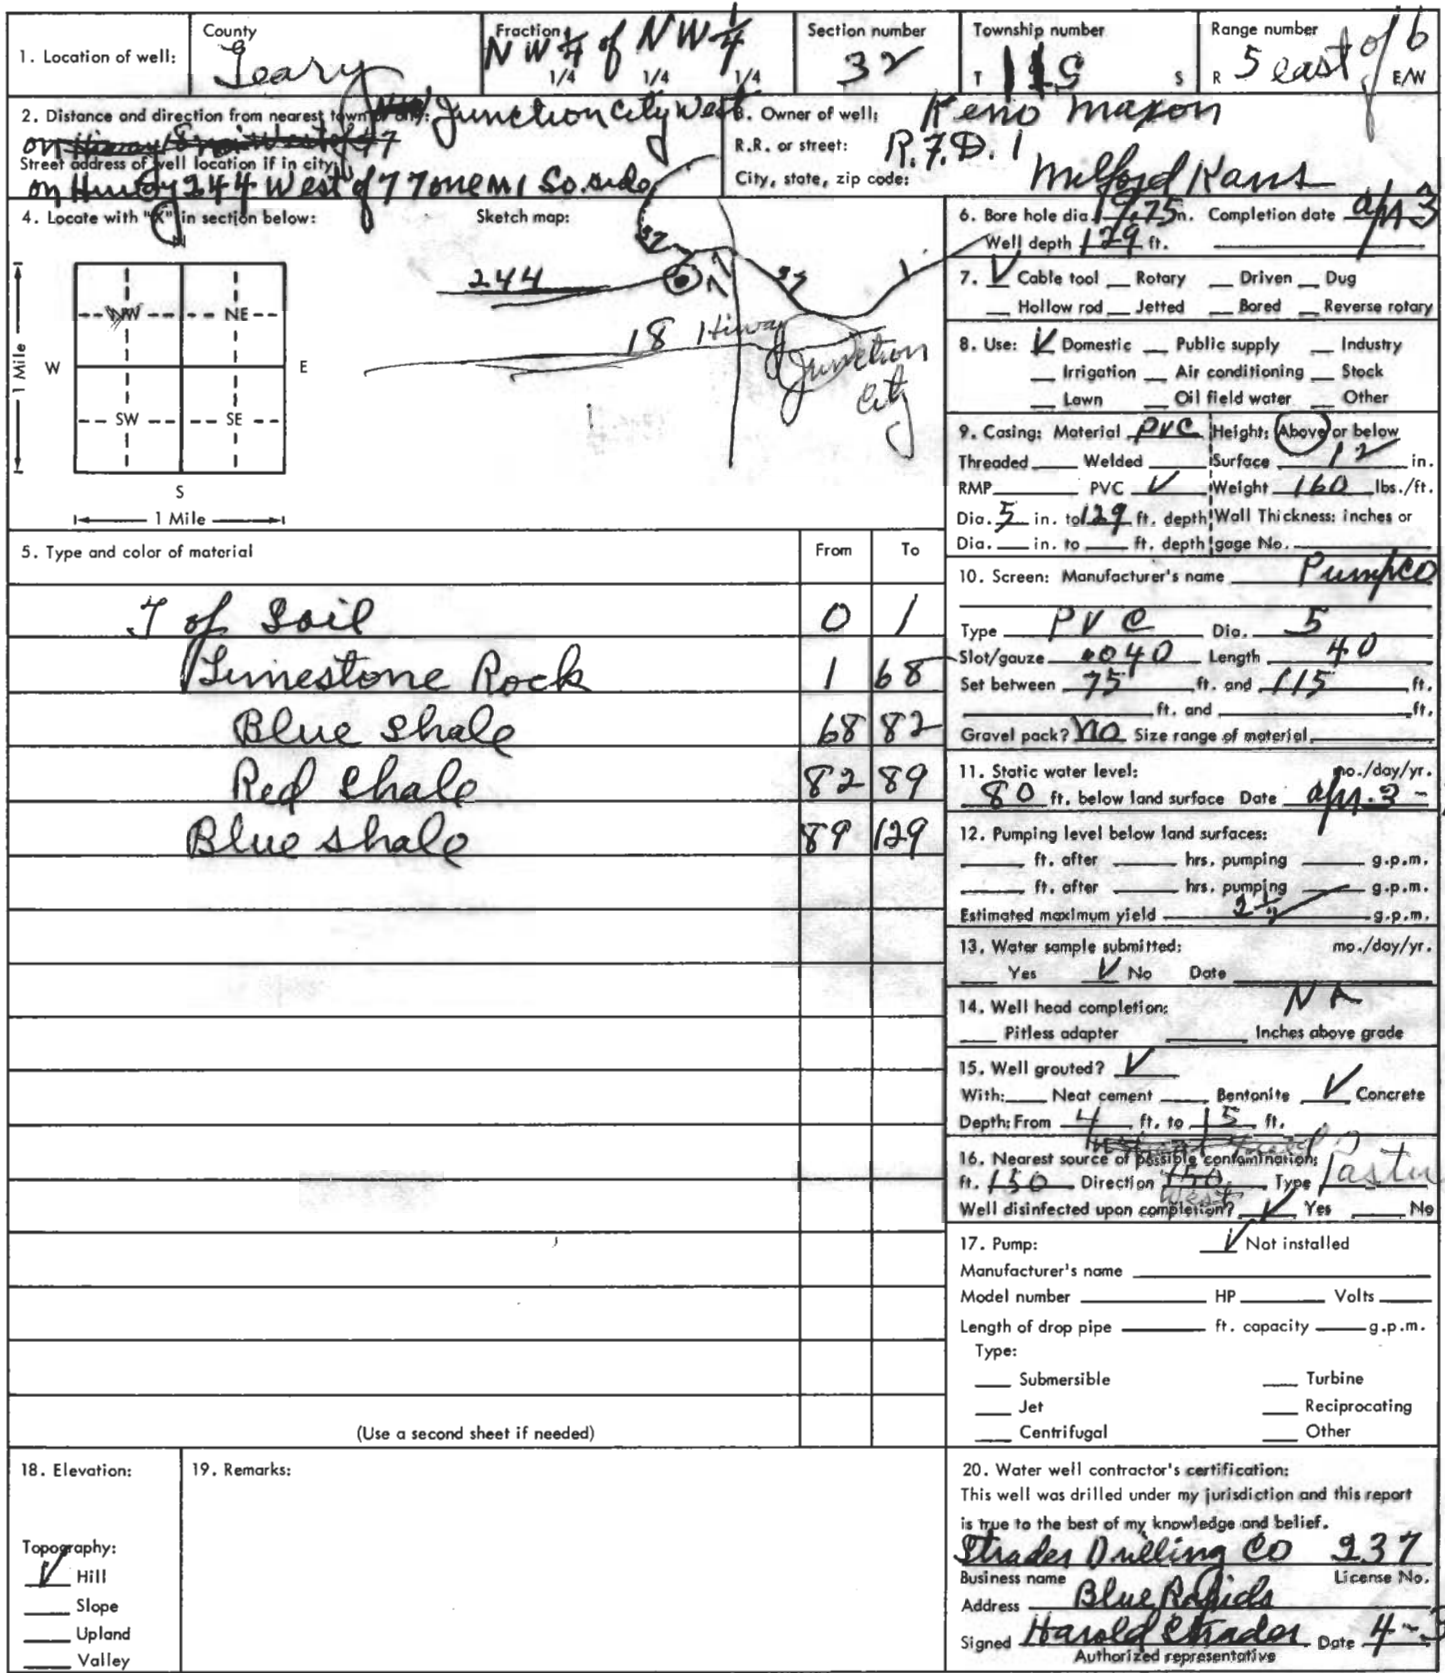 1. Location of well:
County
Geary
Fraction
NW 1/4 of NW 1/4
1/4 1/4 1/4
Section number
32
Township number
T 11S S
Range number
R 5 east of 6 E/W
2. Distance and direction from nearest town or city: Junction City West
on
Street address of well location if in city:
on Hiway 244 West of 77 one mi So. side
3. Owner of well: Keno Maxon
R.R. or street: R.F.D. 1
City, state, zip code: Milford Kans
4. Locate with "X" in section below:
Sketch map:
N
NW NE
W E
SW SE
S
1 Mile
1 Mile
244
57
77
57
18 Hiway
Junction
City
5. Type and color of material From To
T of Soil 0 1
Limestone Rock 1 68
Blue Shale 68 82
Red Shale 82 89
Blue shale 89 129
(Use a second sheet if needed)
6. Bore hole dia. in. Completion date Apr 3
Well depth 129 ft.
7. ✓ Cable tool Rotary Driven Dug
Hollow rod Jetted Bored Reverse rotary
8. Use: ✓ Domestic Public supply Industry
Irrigation Air conditioning Stock
Lawn Oil field water Other
9. Casing: Material PVC Height: Above or below
Threaded Welded Surface 12 in.
RMP PVC ✓ Weight 160 lbs./ft.
Dia. 5 in. to 129 ft. depth Wall Thickness: inches or
Dia. in. to ft. depth gage No.
10. Screen: Manufacturer's name Pumpco
Type PVC Dia. 5
Slot/gauze .040 Length 40
Set between 75 ft. and 115 ft.
ft. and ft.
Gravel pack? No Size range of material
11. Static water level: mo./day/yr.
80 ft. below land surface Date Apr. 3 -
12. Pumping level below land surfaces:
ft. after hrs. pumping g.p.m.
ft. after hrs. pumping g.p.m.
Estimated maximum yield 2 1/2 g.p.m.
13. Water sample submitted: mo./day/yr.
Yes ✓ No Date
14. Well head completion: NA
Pitless adapter Inches above grade
15. Well grouted? ✓
With: Neat cement Bentonite ✓ Concrete
Depth: From 4 ft. to 15 ft.
16. Nearest source of possible contamination:
ft. 150 Direction West Type Pastu
Well disinfected upon completion? ✓ Yes No
17. Pump: ✓ Not installed
Manufacturer's name
Model number HP Volts
Length of drop pipe ft. capacity g.p.m.
Type:
Submersible Turbine
Jet Reciprocating
Centrifugal Other
18. Elevation:
Topography:
✓ Hill
Slope
Upland
Valley
19. Remarks:
20. Water well contractor's certification:
This well was drilled under my jurisdiction and this report
is true to the best of my knowledge and belief.
Strader Drilling Co 237
Business name License No.
Address Blue Rapids
Signed Harold Strader Date 4-3
Authorized representative